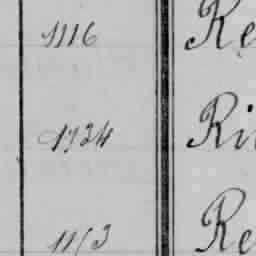 1116 Re
1734 Ri
11 3 Re